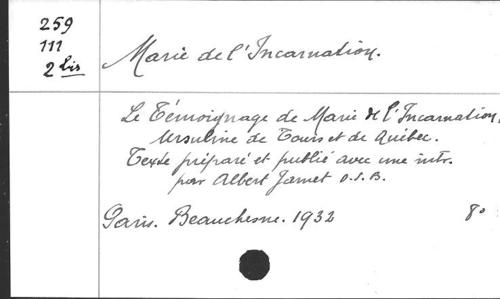 259
111
2 bis
Marie de l'Incarnation.
Le Témoignage de Marie de l'Incarnation,
Ursuline de Tours et de Québec.
Texte préparé et publié avec une intr.
par Albert Jamet O.S.B.
Paris. Beauchesne. 1932 8º